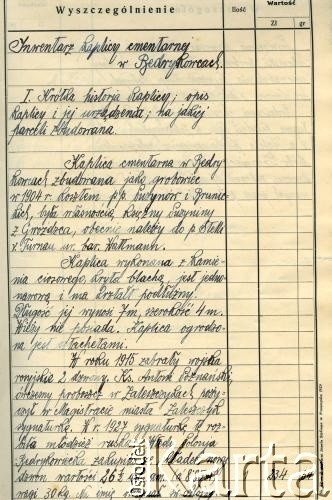 Wyszczególnienie
Ilość
Wartość
Zł
gr
Inwentarz kaplicy cmentarnej
w Bedrykowcach.
I. Krótka historja kaplicy; opis
kaplicy i jej urządzenia; na jakiej
parceli zbudowana.
Kaplica cmentarna w Bedry
kowcach zbudowana jako grobowiec
w 1904 r. kosztem p/p.
kich, była własnością
z Gródźca, obecnie należy do p. Stelli
z Turnau ur. bar. Wattmann.
Kaplica wykonana z kamie-
nia ciosowego, kryta blachą, jest jedno-
nawową i ma kształt podłużny.
Długość jej wynosi 7 m, szerokość 4 m.
Wieży nie posiada. Kaplica ogrodzo-
na jest sztachetami.
W roku 1915 zabrały wojska
rosyjskie 2 dzwony. Ks. Antoni Poznański,
obecny proboszcz w Zaleszczykach poży-
czył w Magistracie miasta Zaleszczyk
sygnaturkę. W r. 1927 sygnaturkę tę roz-
biła młodzież ruska. Wtedy Polonja
Bedrykowiecka zakupiła ze składek nowy
dzwon wartości 26
wagi 30 kg.
234
Karta
ośrodek